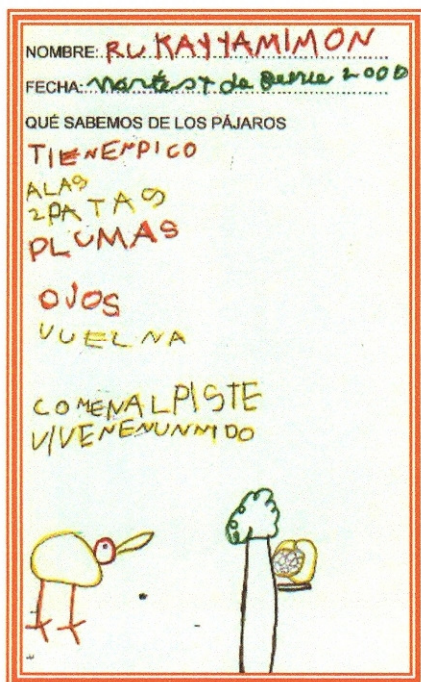 NOMBRE: RUKAYYAMIMON
FECHA: martes de 2000
QUÉ SABEMOS DE LOS PÁJAROS
TIENENPICO
ALAS
2PATAS
PLUMAS
OJOS
VUELNA
COMENALPISTE
VIVENENUNNIDO